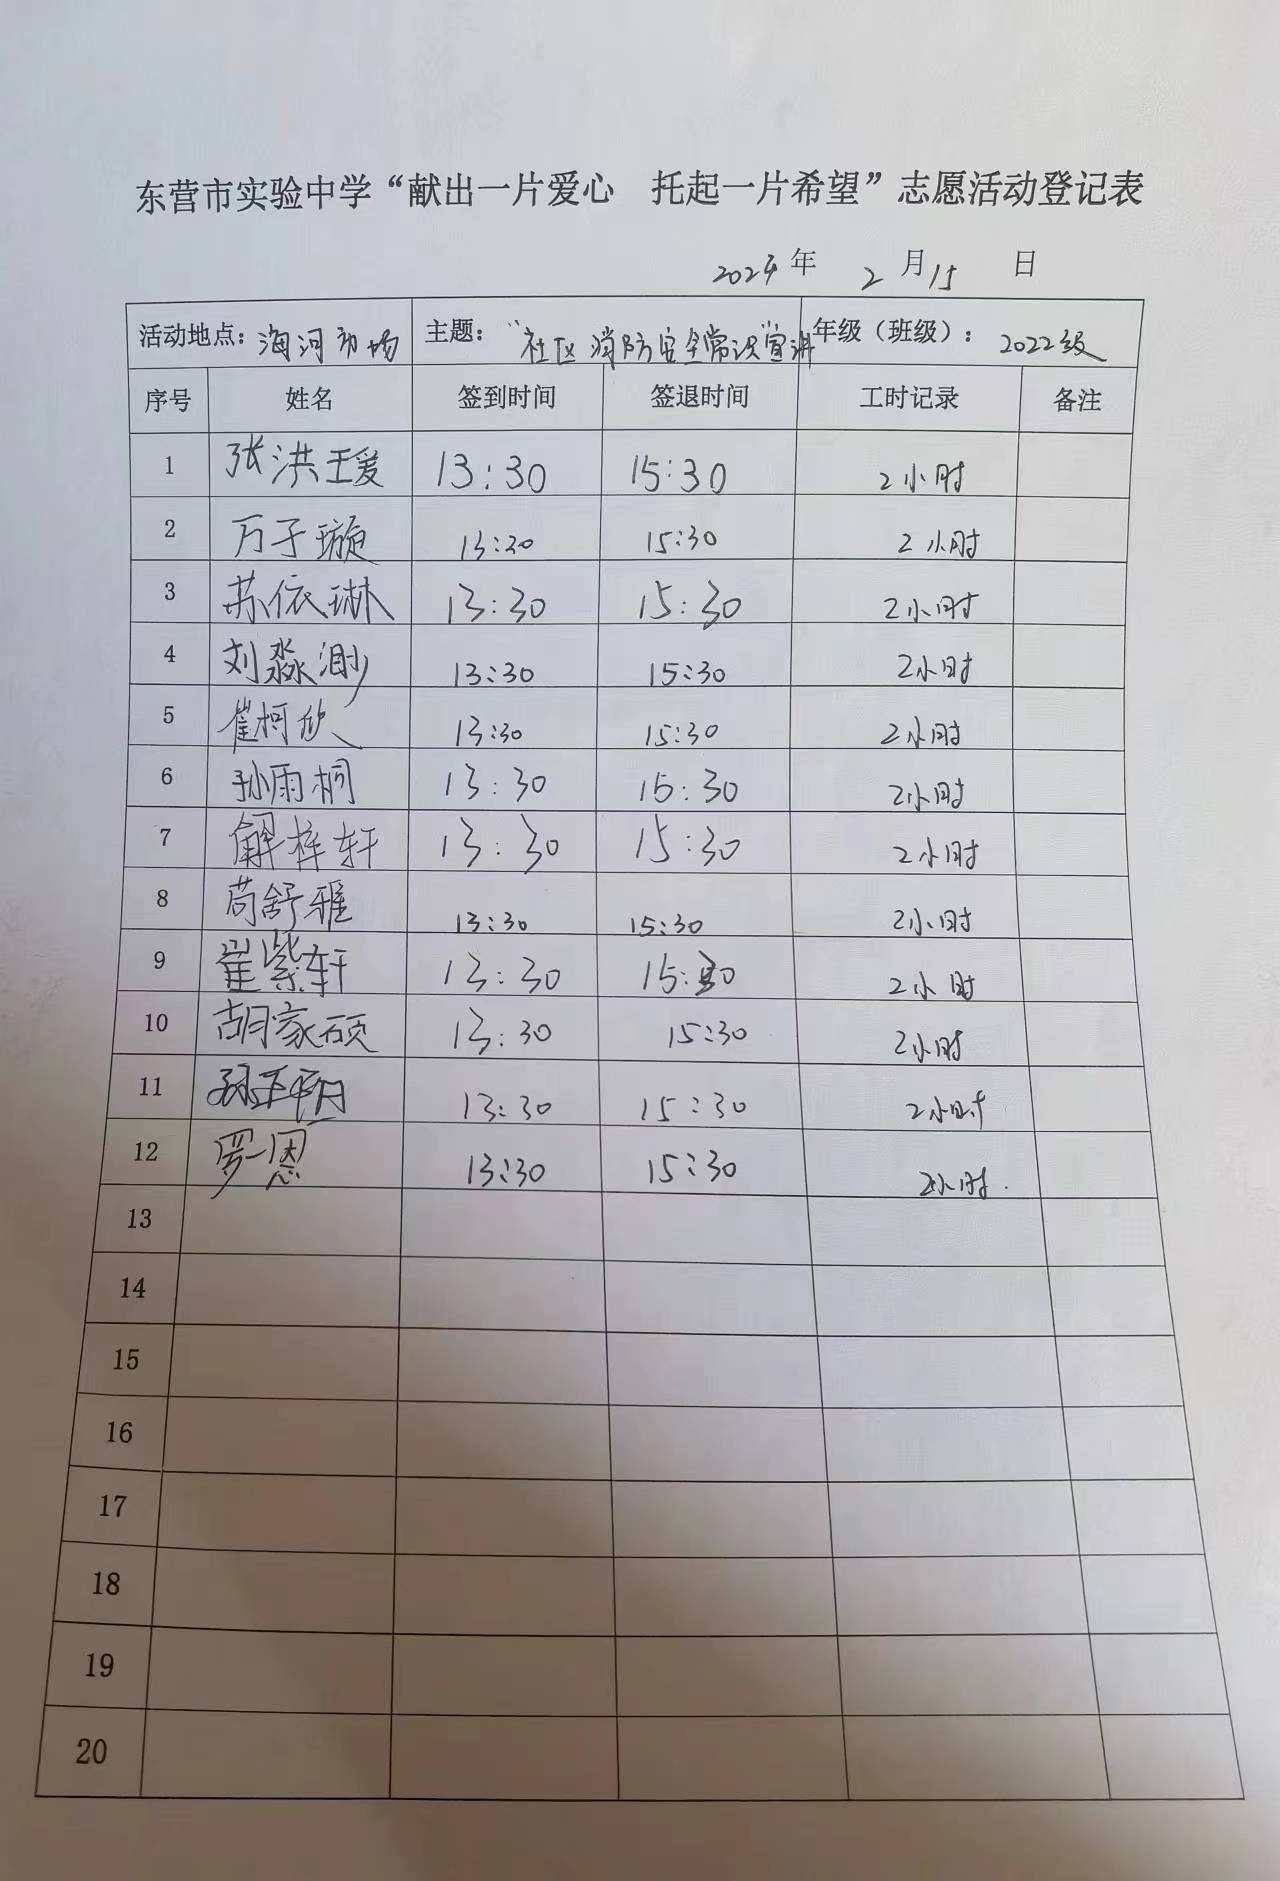 东营市实验中学“献出一片爱心 托起一片希望”志愿活动登记表
2024年 2月15日
活动地点：海河市场 主题：“社区消防安全常识”宣讲 年级（班级）：2022级
序号 姓名 签到时间 签退时间 工时记录 备注
1 张洪瑷 13:30 15:30 2小时
2 万子璇 13:30 15:30 2小时
3 苏依琳 13:30 15:30 2小时
4 刘淼渺 13:30 15:30 2小时
5 崔柯欣 13:30 15:30 2小时
6 孙雨桐 13:30 15:30 2小时
7 解梓轩 13:30 15:30 2小时
8 苟舒雅 13:30 15:30 2小时
9 崔紫轩 13:30 15:30 2小时
10 胡家硕 13:30 15:30 2小时
11 13:30 15:30 2小时
12 罗一恩 13:30 15:30 2小时.
13
14
15
16
17
18
19
20